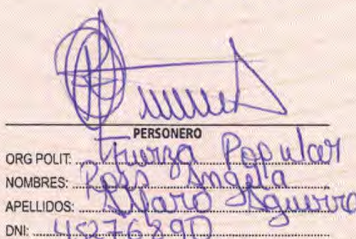 PERSONERO
ORG POLIT: Fuerza Popular
NOMBRES: Rosa Angela
APELLIDOS: Alfaro Aguirre
DNI: 45276890